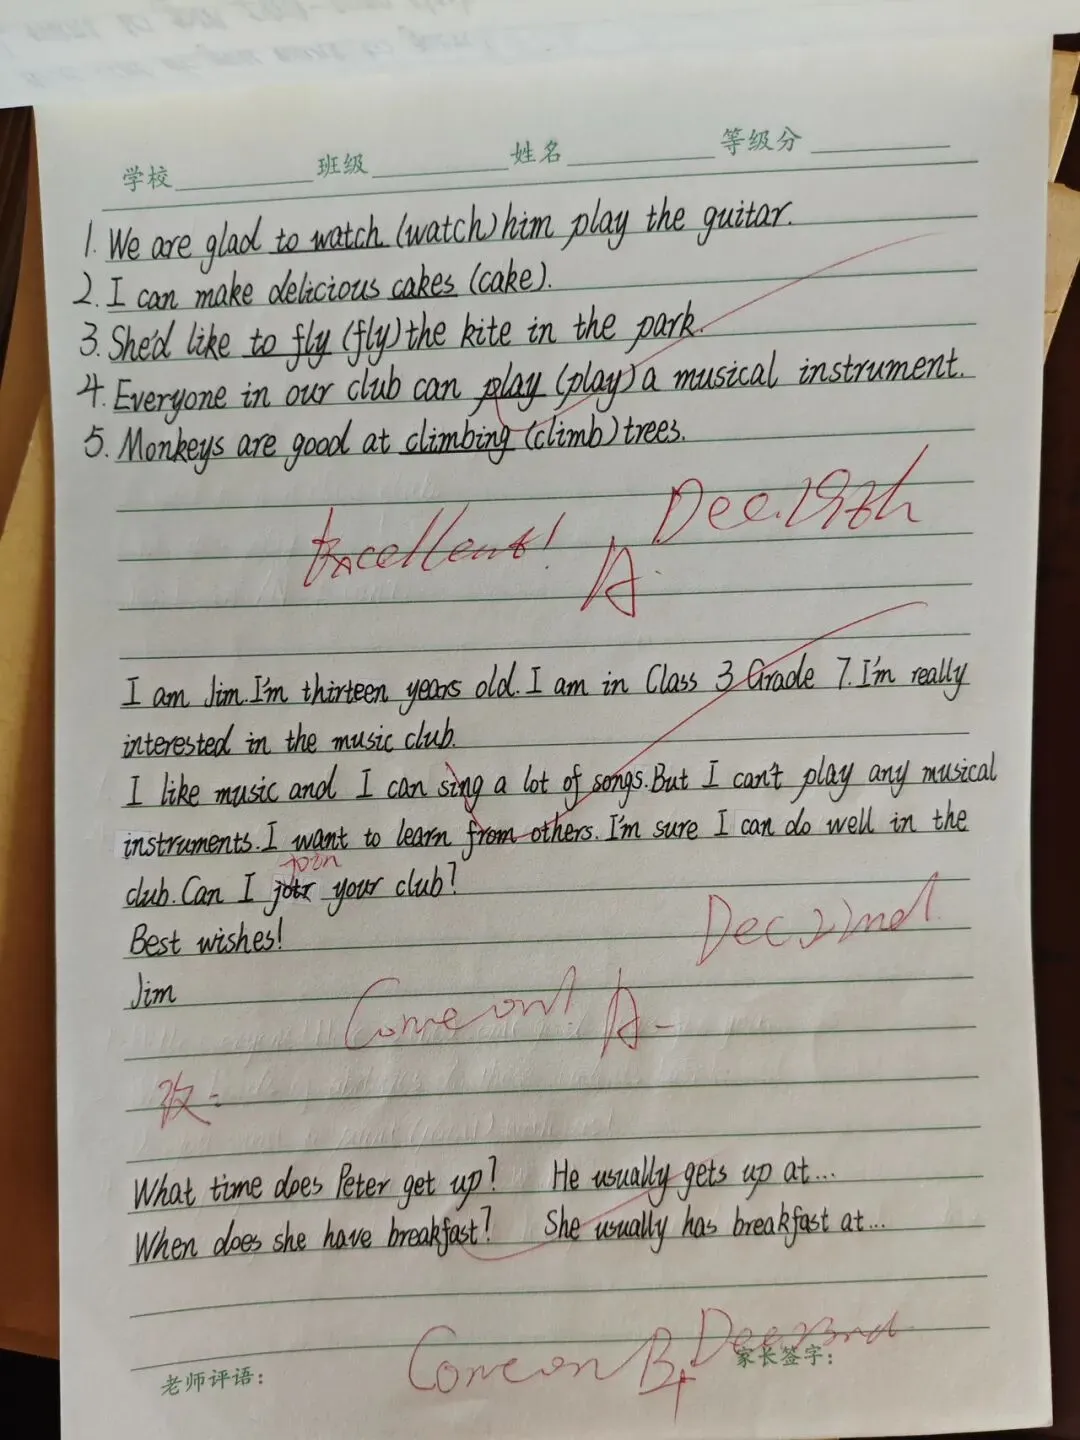 学校 班级 姓名 等级分
1. We are glad to watch (watch) him play the guitar.
2. I can make delicious cakes (cake).
3. She'd like to fly (fly) the kite in the park.
4. Everyone in our club can play (play) a musical instrument.
5. Monkeys are good at climbing (climb) trees.
Dec.19th
Excellent! A
I am Jim. I'm thirteen years old. I am in Class 3 Grade 7. I'm really
interested in the music club.
I like music and I can sing a lot of songs. But I can't play any musical
instruments. I want to learn from others. I'm sure I can do well in the
join
club. Can I your club?
Best wishes!
Dec 22nd
Jim
Come on! A-
改:
What time does Peter get up? He usually gets up at...
When does she have breakfast? She usually has breakfast at...
Come on B+ Dec 23rd
老师评语: 家长签字: